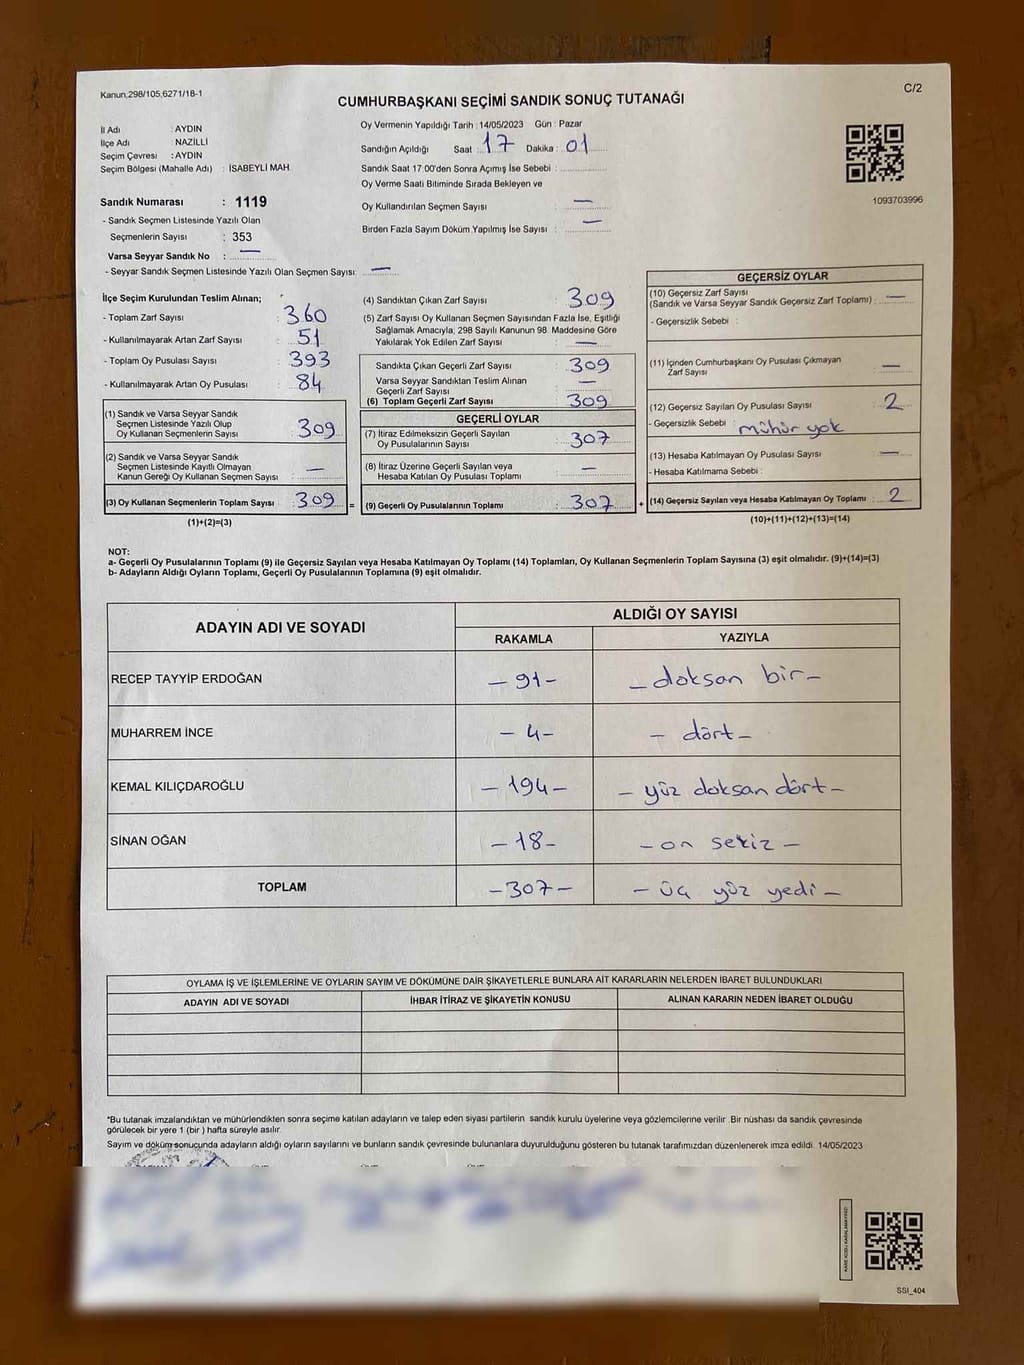 Kanun,298/105,6271/18-1
C/2
CUMHURBAŞKANI SEÇİMİ SANDIK SONUÇ TUTANAĞI
İl Adı : AYDIN
İlçe Adı : NAZİLLİ
Seçim Çevresi : AYDIN
Seçim Bölgesi (Mahalle Adı) : İSABEYLİ MAH.
Oy Vermenin Yapıldığı Tarih : 14/05/2023 Gün : Pazar
Sandığın Açıldığı Saat : 17 Dakika : 01
Sandık Saat 17:00'den Sonra Açımış İse Sebebi :
Oy Verme Saati Bitiminde Sırada Bekleyen ve
Oy Kullandırılan Seçmen Sayısı : —
Birden Fazla Sayım Döküm Yapılmış İse Sayısı : —
1093703996
Sandık Numarası : 1119
- Sandık Seçmen Listesinde Yazılı Olan
Seçmenlerin Sayısı : 353
Varsa Seyyar Sandık No : —
- Seyyar Sandık Seçmen Listesinde Yazılı Olan Seçmen Sayısı: —
İlçe Seçim Kurulundan Teslim Alınan;
- Toplam Zarf Sayısı : 360
- Kullanılmayarak Artan Zarf Sayısı : 51
- Toplam Oy Pusulası Sayısı : 393
- Kullanılmayarak Artan Oy Pusulası : 84
(1) Sandık ve Varsa Seyyar Sandık
Seçmen Listesinde Yazılı Olup
Oy Kullanan Seçmenlerin Sayısı : 309
(2) Sandık ve Varsa Seyyar Sandık
Seçmen Listesinde Kayıtlı Olmayan
Kanun Gereği Oy Kullanan Seçmen Sayısı : —
(3) Oy Kullanan Seçmenlerin Toplam Sayısı : 309 =
(1)+(2)=(3)
(4) Sandıktan Çıkan Zarf Sayısı : 309
(5) Zarf Sayısı Oy Kullanan Seçmen Sayısından Fazla İse, Eşitliği
Sağlamak Amacıyla; 298 Sayılı Kanunun 98. Maddesine Göre
Yakılarak Yok Edilen Zarf Sayısı : —
Sandıkta Çıkan Geçerli Zarf Sayısı : 309
Varsa Seyyar Sandıktan Teslim Alınan
Geçerli Zarf Sayısı : —
(6) Toplam Geçerli Zarf Sayısı : 309
GEÇERLİ OYLAR
(7) İtiraz Edilmeksizin Geçerli Sayılan
Oy Pusulalarının Sayısı : 307
(8) İtiraz Üzerine Geçerli Sayılan veya
Hesaba Katılan Oy Pusulası Toplamı : —
(9) Geçerli Oy Pusulalarının Toplamı : 307 +
GEÇERSİZ OYLAR
(10) Geçersiz Zarf Sayısı
(Sandık ve Varsa Seyyar Sandık Geçersiz Zarf Toplamı) : —
- Geçersizlik Sebebi :
(11) İçinden Cumhurbaşkanı Oy Pusulası Çıkmayan
Zarf Sayısı : —
(12) Geçersiz Sayılan Oy Pusulası Sayısı : 2
- Geçersizlik Sebebi : mühür yok
(13) Hesaba Katılmayan Oy Pusulası Sayısı : —
- Hesaba Katılmama Sebebi :
(14) Geçersiz Sayılan veya Hesaba Katılmayan Oy Toplamı : 2
(10)+(11)+(12)+(13)=(14)
NOT:
a- Geçerli Oy Pusulalarının Toplamı (9) ile Geçersiz Sayılan veya Hesaba Katılmayan Oy Toplamı (14) Toplamları, Oy Kullanan Seçmenlerin Toplam Sayısına (3) eşit olmalıdır. (9)+(14)=(3)
b- Adayların Aldığı Oyların Toplamı, Geçerli Oy Pusulalarının Toplamına (9) eşit olmalıdır.
ADAYIN ADI VE SOYADI ALDIĞI OY SAYISI
RAKAMLA YAZIYLA
RECEP TAYYİP ERDOĞAN – 91 – – doksan bir –
MUHARREM İNCE – 4 – – dört –
KEMAL KILIÇDAROĞLU – 194 – – yüz doksan dört –
SİNAN OĞAN – 18 – – on sekiz –
TOPLAM – 307 – – üç yüz yedi –
OYLAMA İŞ VE İŞLEMLERİNE VE OYLARIN SAYIM VE DÖKÜMÜNE DAİR ŞİKAYETLERLE BUNLARA AİT KARARLARIN NELERDEN İBARET BULUNDUKLARI
ADAYIN ADI VE SOYADI İHBAR İTİRAZ VE ŞİKAYETİN KONUSU ALINAN KARARIN NEDEN İBARET OLDUĞU
*Bu tutanak imzalandıktan ve mühürlendikten sonra seçime katılan adayların ve talep eden siyasi partilerin sandık kurulu üyelerine veya gözlemcilerine verilir. Bir nüshası da sandık çevresinde
görülecek bir yere 1 (bir ) hafta süreyle asılır.
Sayım ve döküm sonucunda adayların aldığı oyların sayılarını ve bunların sandık çevresinde bulunanlara duyurulduğunu gösteren bu tutanak tarafımızdan düzenlenerek imza edildi. 14/05/2023
SSI_404